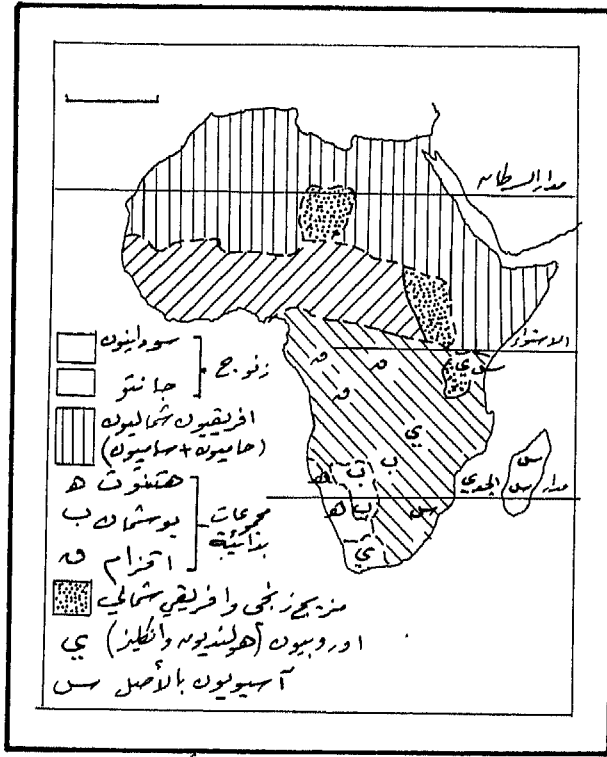 مدار السرطان
الاستواء
ق
ق
ق
ي
س
ي
ب
ب
ب
ه
ه
ي
س
س
س
مدار الجدي
سودانيون
جانتو
زنوج
افريقيون شماليون
(حاميون + ساميون)
هتنوت ه
بوشمان ب
اقزام ق
مجموعات
بدائية
مزيج زنجي وافريقي شمالي
اوروبيون (هولنديون وانكليز) ي
آسيويون بالأصل س